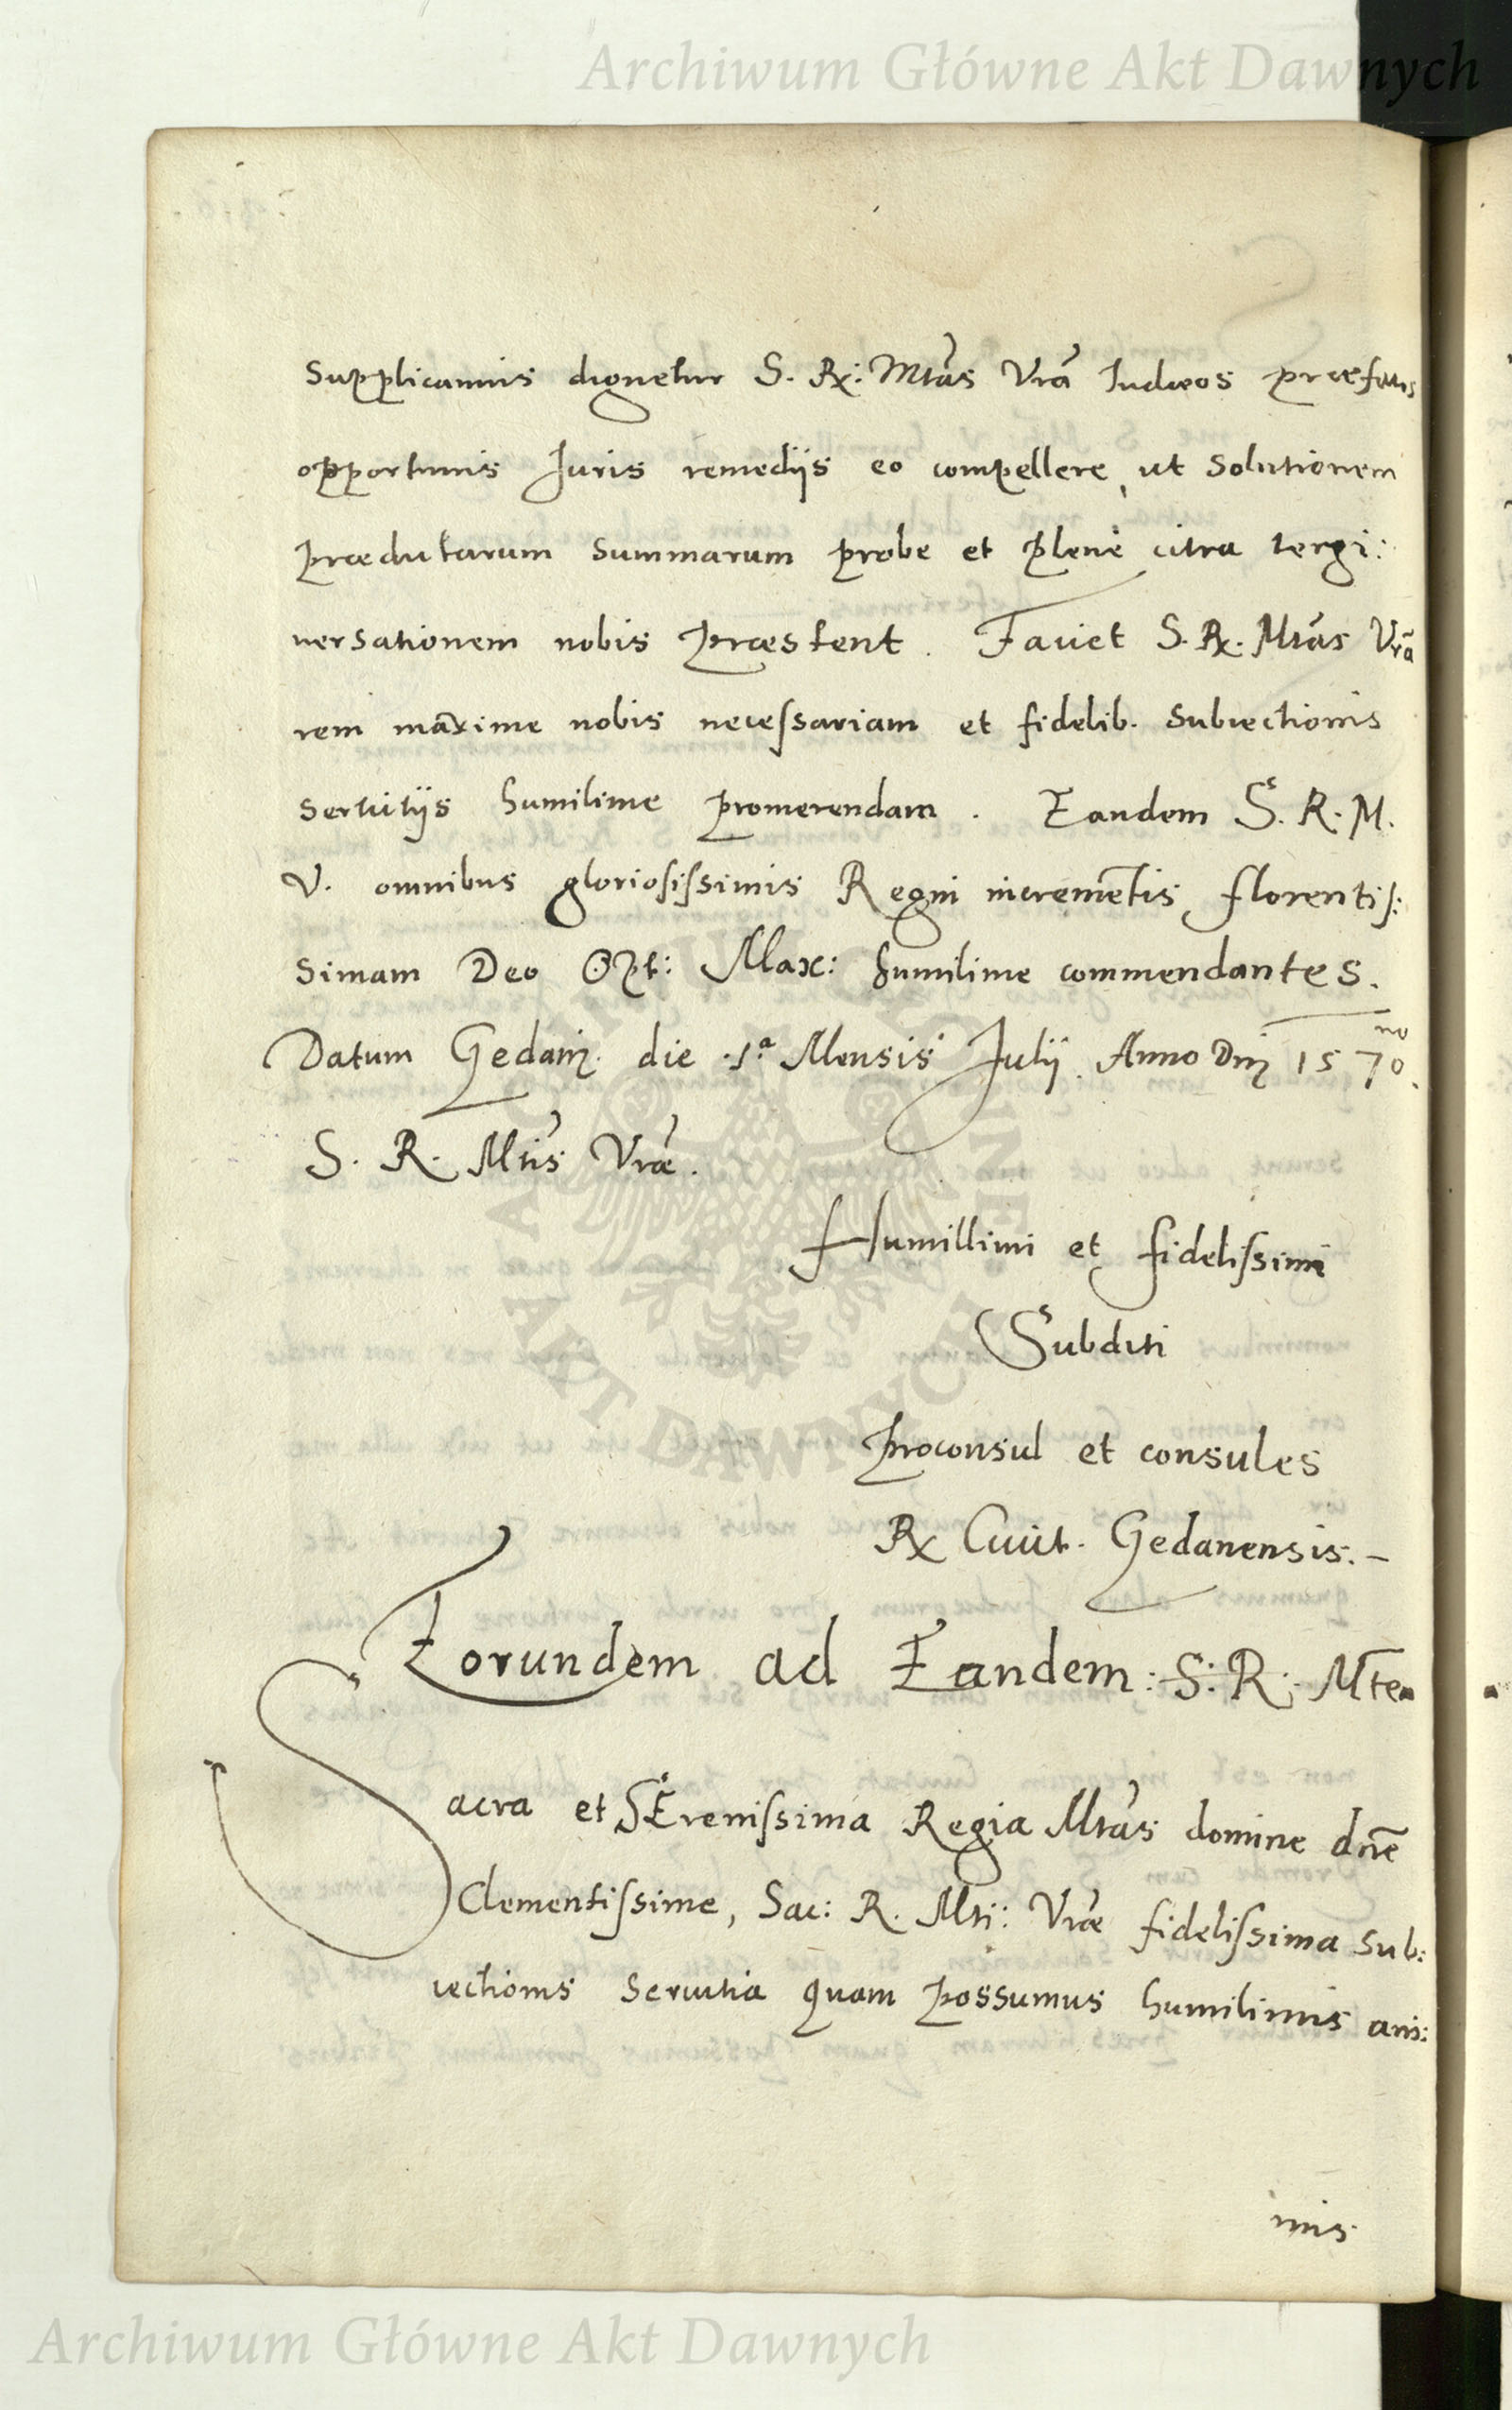 Archiwum Główne Akt Dawnych
supplicamus dignetur S. R: Mtas Vra Iudæos præfatos
opportunis Iuris remediis eo compellere, ut solutionem
prædictarum summarum probe et plene citra tergi:
versationem nobis præstent. Faciet S. R. Mtas Vra
rem maxime nobis necessariam et fidelib. subiectionis
servitijs humilime promerendam. Eandem S. R. M.
V. omnibus gloriosissimis Regni incrementis florentis:
simam Deo Opt: Max: humilime commendantes.
Datum Gedani die 1a Mensis Julij Anno Dni 1570no.
S. R. Mtis Vræ.
Humillimi et fidelissimi
Subditi
Proconsul et consules
R Civit. Gedanensis.
Eorundem ad Eandem: S: R: Mtem
Sacra et SErenissima Regia Mtas domine dne
Clementissime, Sac: R. Mti: Vræ fidelissima sub:
iectionis servitia quam possumus humilimis ani:
mis
ARCHIWUM GŁÓWNE AKT DAWNYCH
Archiwum Główne Akt Dawnych